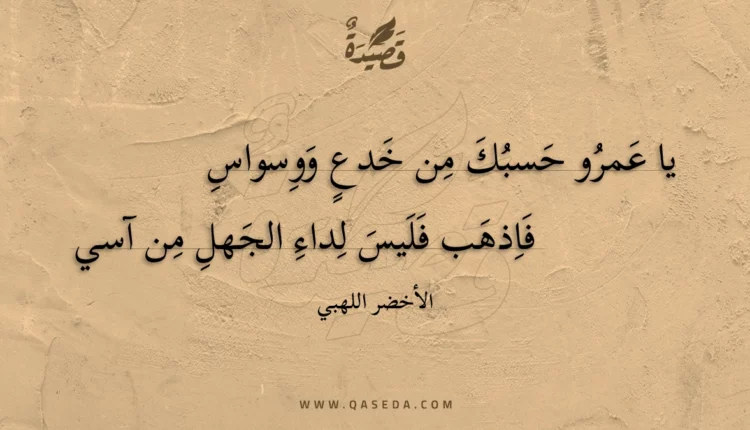 قَصِيدَةٌ
يا عَمرُو حَسبُكَ مِن خَدعٍ وَوِسواسِ
فَاِذهَب فَلَيسَ لِداءِ الجَهلِ مِن آسي
الأخضر اللهبي
WWW.QASEDA.COM